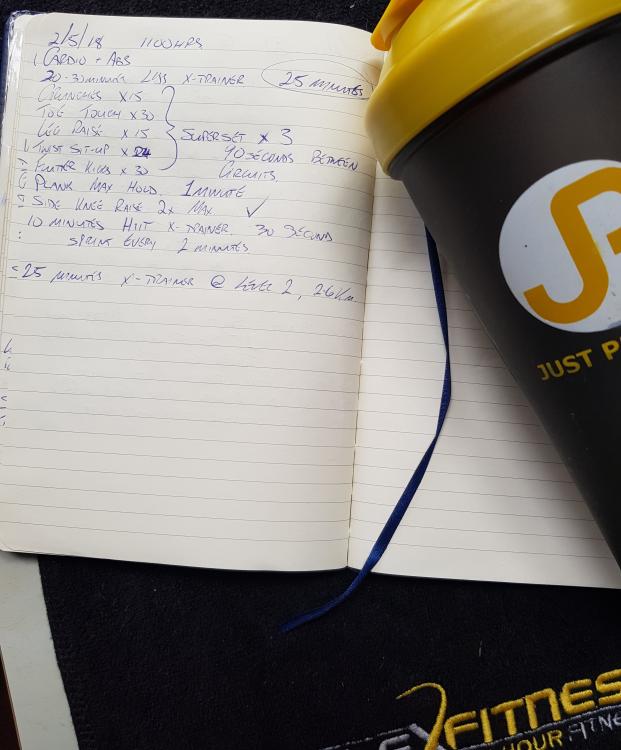 2/5/18 1100HRS
CARDIO + ABS
20-30 MINUTES LISS X-TRAINER 25 MINUTES
CRUNCHES X15
TOE TOUCH X30
LEG RAISE X15
TWIST SIT-UP X
FLUTTER KICKS X 30
SUPERSET X 3
90 SECONDS BETWEEN
CIRCUITS.
PLANK MAX HOLD. 1 MINUTE
SIDE KNEE RAISE 2X MAX ✓
10 MINUTES HIIT X-TRAINER 30 SECOND
SPRINT EVERY 2 MINUTES
25 MINUTES X-TRAINER @ LEVEL 2, 2.6KM
JP
JUST P
XFITNES
YOUR FITNE